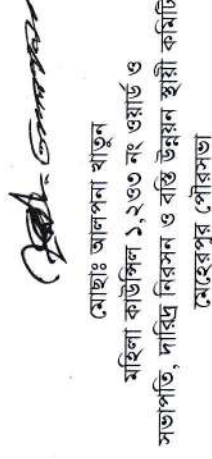 মোছাঃ আলপনা খাতুন
মহিলা কাউন্সিল ১,২৩৩ নং ওয়ার্ড ও
সভাপতি, দারিদ্র নিরসন ও বস্তি উন্নয়ন স্থায়ী কমিটি
মেহেরপুর পৌরসভা